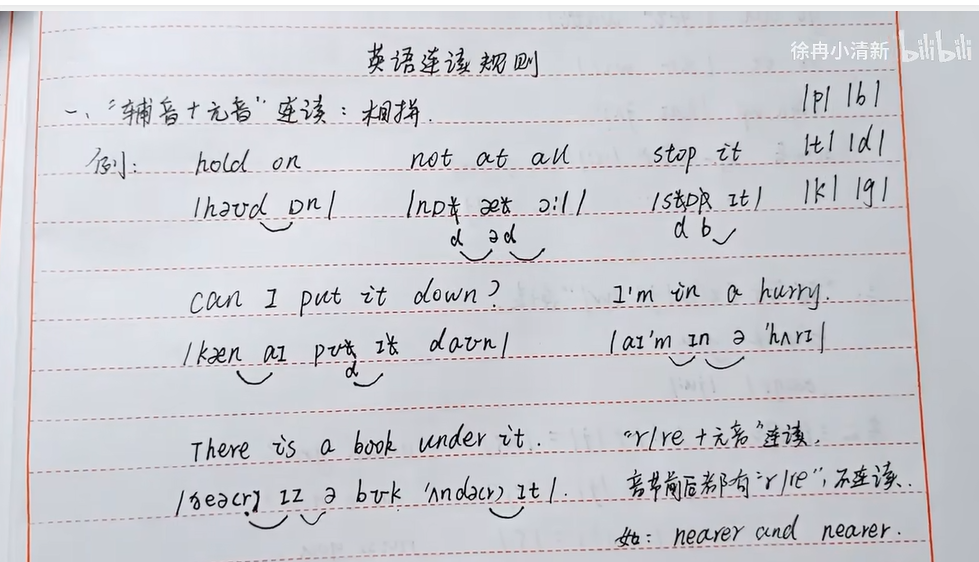 徐冉小清新 bilibili
英语连读规则
一、"辅音+元音"连读：相拼. |p| |b|
例: hold on not at all stop it |t| |d|
|həʊd ɒn| |nɒt æt ɔ:l| |stɒp ɪt| |k| |g|
d əd d b
can I put it down? I'm in a hurry.
|kæn aɪ pʊt ɪt daʊn| |aɪ'm ɪn ə 'hʌrɪ|
d
There is a book under it. "r/re+元音"连读,
|ðeə(r) ɪz ə bʊk 'ʌndə(r) ɪt|. 音节前后都有"r/re",不连读.
如: nearer and nearer.